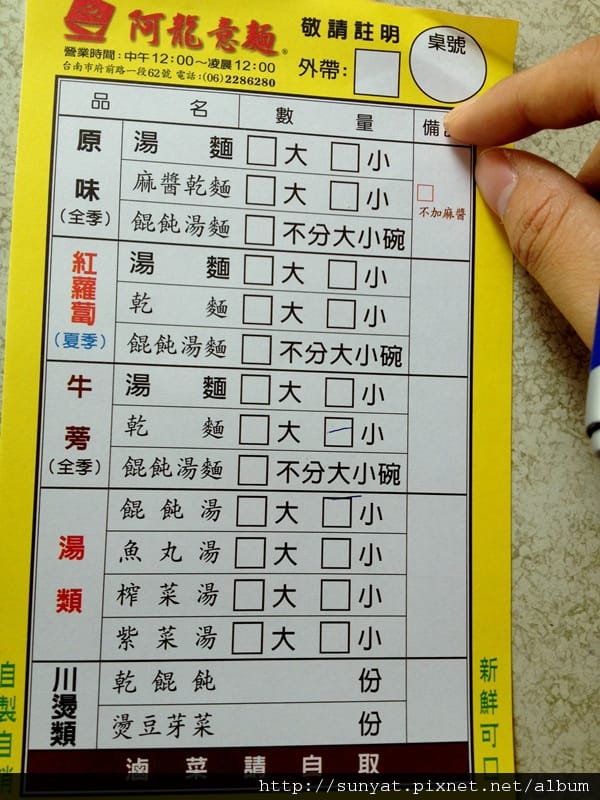 阿龍意麵®
敬請註明
外帶：
桌號
營業時間：中午12:00～凌晨12:00
台南市府前路一段62號 電話：(06)2286280
品 名 數 量 備
原味（全季）
湯 麵 □大 □小
麻醬乾麵 □大 □小
□不加麻醬
餛飩湯麵 □不分大小碗
紅蘿蔔（夏季）
湯 麵 □大 □小
乾 麵 □大 □小
餛飩湯麵 □不分大小碗
牛蒡（全季）
湯 麵 □大 □小
乾 麵 □大 □小
餛飩湯麵 □不分大小碗
湯類
餛飩湯 □大 □小
魚丸湯 □大 □小
榨菜湯 □大 □小
紫菜湯 □大 □小
川燙類
乾餛飩 份
燙豆芽菜 份
滷菜請自取
自製自銷
新鮮可口
http://sunyat.pixnet.net/album